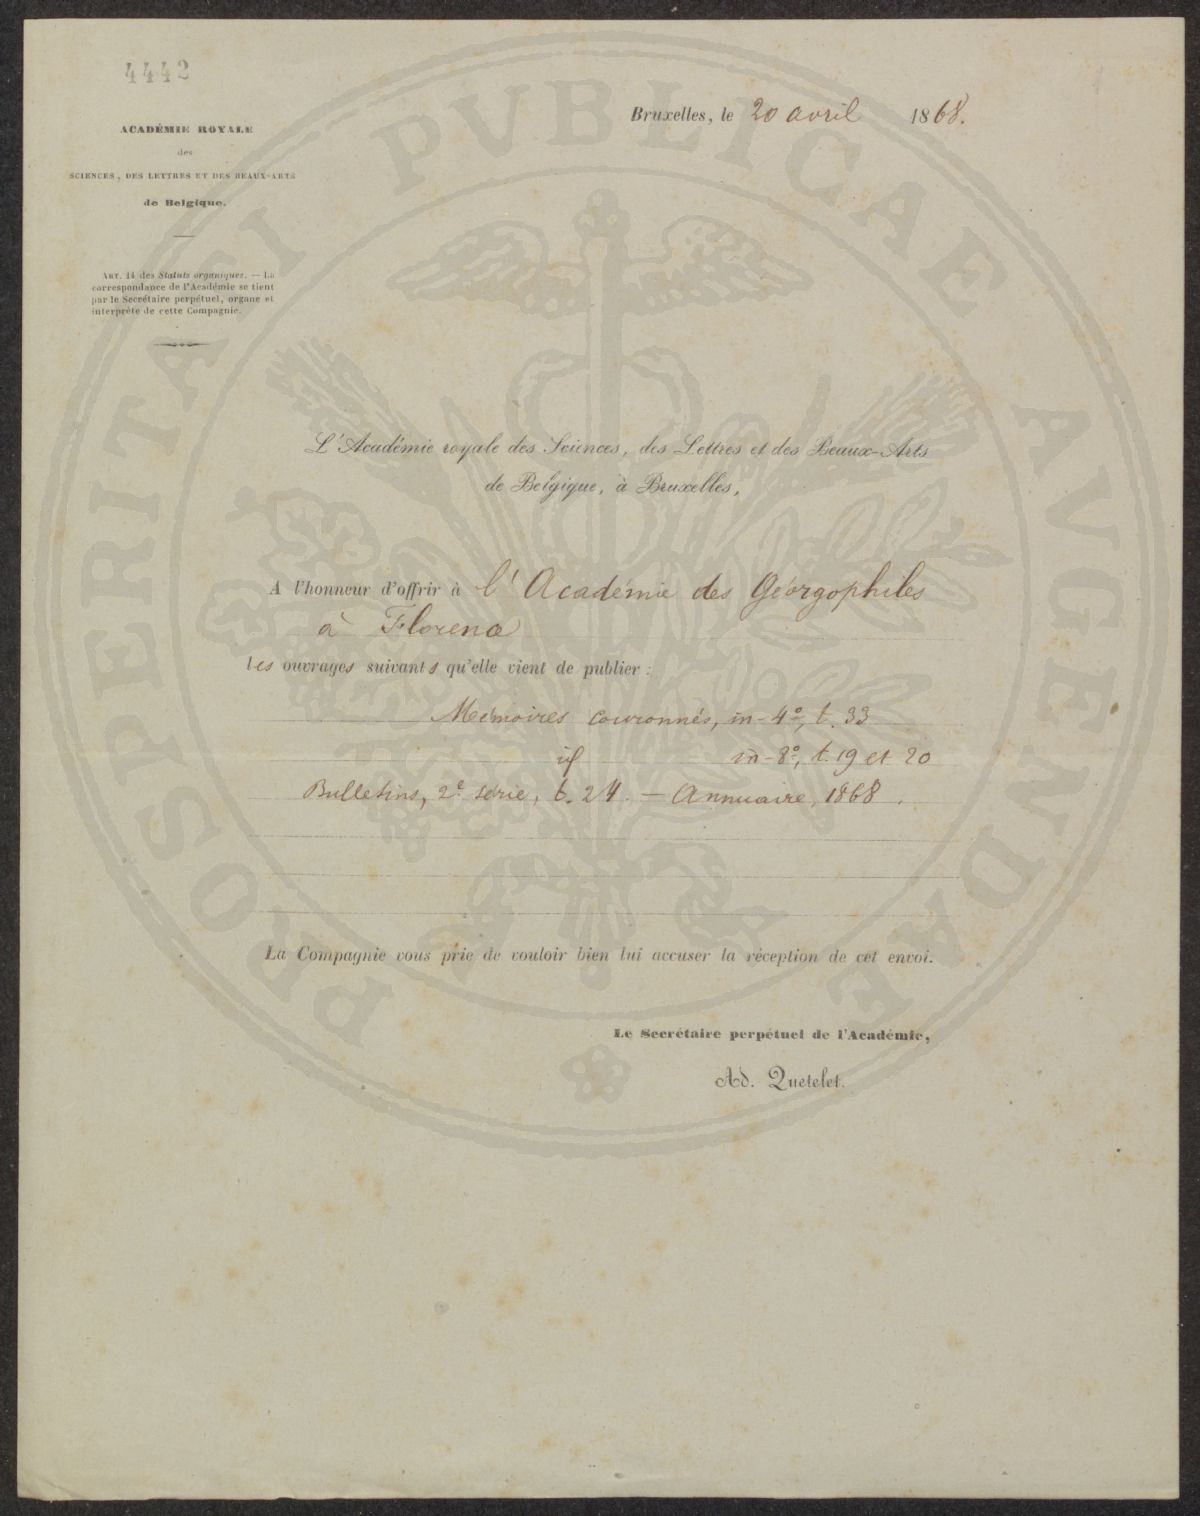 4442
ACADÉMIE ROYALE
des
SCIENCES, DES LETTRES ET DES BEAUX-ARTS
de Belgique.
ART. 14 des Statuts organiques. — La
correspondance de l'Académie se tient
par le Secrétaire perpétuel, organe et
interprète de cette Compagnie.
Bruxelles, le 20 avril 1868.
PROSPERITATI PVBLICAE AVGENDAE
L'Académie royale des Sciences, des Lettres et des Beaux-Arts
de Belgique, à Bruxelles,
A l'honneur d'offrir à l'Académie des Géorgophiles
à Florence
les ouvrages suivants qu'elle vient de publier :
Mémoires couronnés, in-4º, t. 33
id in-8º, t. 19 et 20
Bulletins, 2e série, t. 24. — Annuaire, 1868.
La Compagnie vous prie de vouloir bien lui accuser la réception de cet envoi.
Le Secrétaire perpétuel de l'Académie,
Ad. Quetelet.